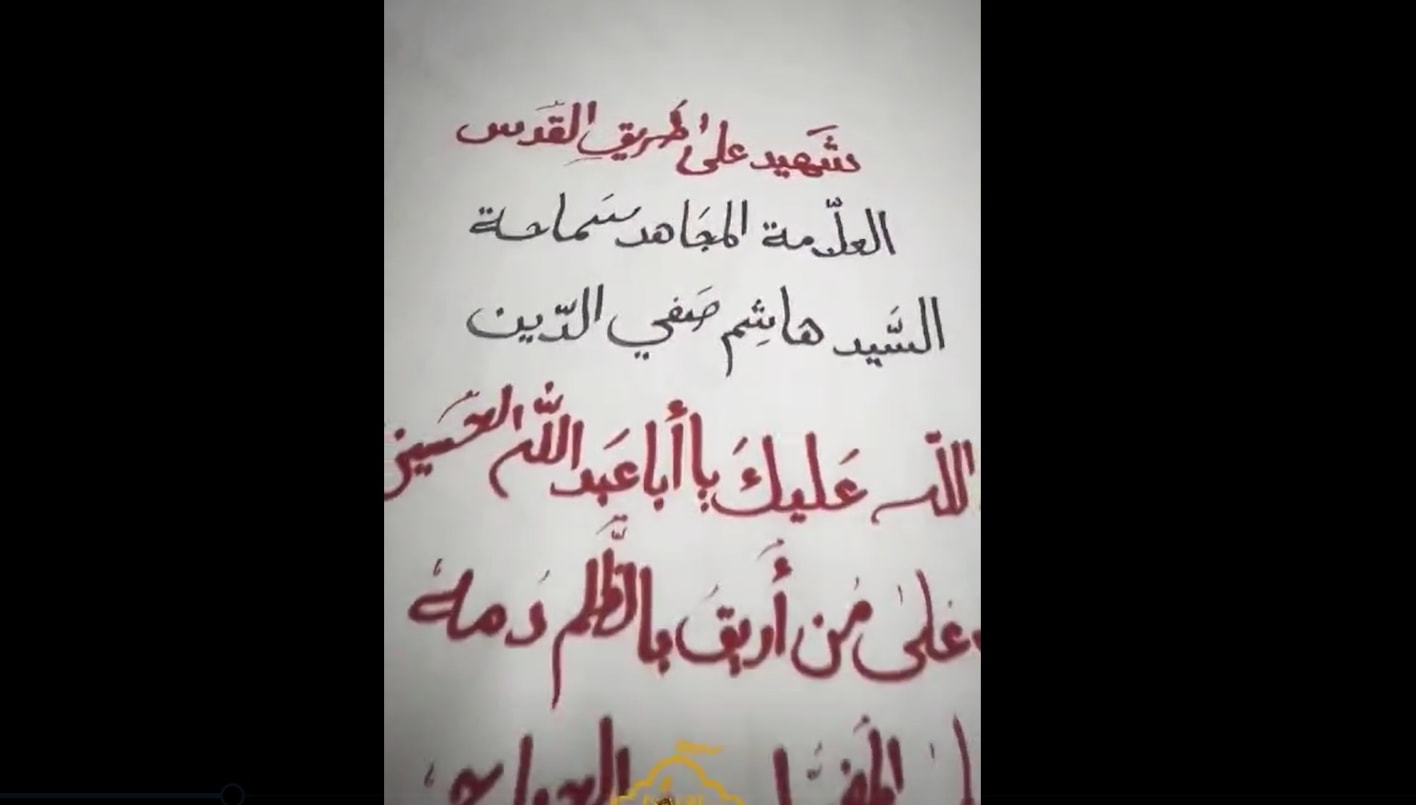 شَهيد على طريقِ القَدس
العلّامة المجَاهد سَماحة
السَّيد هاشِم صَفي الدّين
عَليكَ يا أبا عَبد اللّه الحسَين
على مَن أُريقَ بالظُّلم دَمهُ